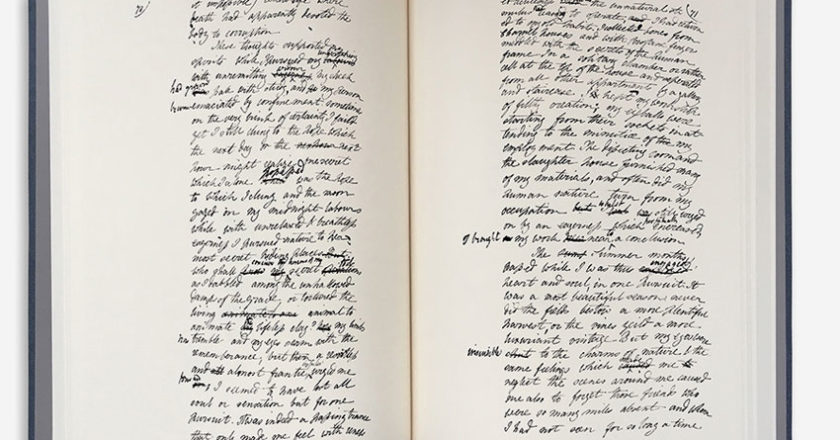 79)
death had apparently devoted the
body to corruption
These thoughts supported my
spirits while I pursued my undertaking
with unremitting my cheek
had grown pale with study, and my person
become emaciated by confinement sometimes
on the very brink of certainty I failed
yet I still clung to the hope which
the next day or the next
hour might realise. one secret
which I alone possessed was the hope
to which I clung and the moon
gazed on my midnight labours
while with unrelaxed & breathless
eagerness I pursued nature to her
most secret hiding places.
who shall conceive the horrors of my secret toil
as I dabbled among the unhallowed
damps of the grave or tortured the
living animal to
animate lifeless clay? my limbs
tremble and my eyes swim with the
remembrance, but then a resistless
and almost frantic impulse urged me
I seemed to have lost all
soul or sensation but for one
pursuit. It was indeed a passing trance
that only made me feel with
the unnatural
to operate, I had return
ed to my old habits. I collected bones from
charnel houses and with profane fingers
meddled with the secrets of the human
frame. In a solitary chamber or rather
cell at the top of the house and separated
from all other appartments by a gallery
and staircase, I kept my workshop
of filthy creation; my eyeballs were
starting from their sockets in at
tending to the minutiae of my
employment. The dissecting room and
the slaughter house furnished many
of my materials, and often did my
human nature turn from my
occupation while still urged
on by an eagerness which increased
I brought my work near to a conclusion
The summer months
passed while I was thus engaged
heart and soul, in one pursuit. It
was a most beautiful season; never
did the fields bestow a more plentiful
harvest, or the vines yeild a more
luxuriant vintage. But my eyes were
insensible to the charms of nature & the
same feelings which made me
neglect the scenes around me caused
me also to forget those friend who
were so many miles absent and whom
I had not seen for so long a time